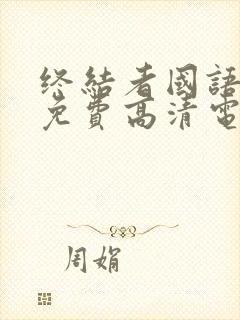 终结者國語
免費高清電
周娟